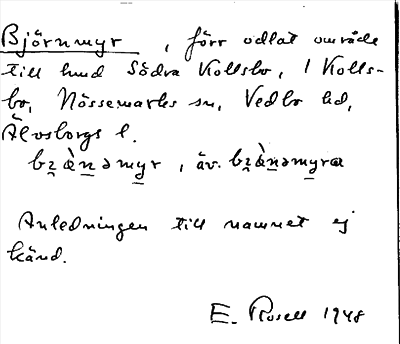 Björnmyr, förr odlat område
till hmd Södra Kollsbo, i Kolls-
bo, Nössemarks sn, Vedbo hd,
Älvsborgs l.
bʐæ̀nəmyr, äv. bʐæ̀nəmyra
Anledningen till namnet ej
känd.
E. Rosell 1948